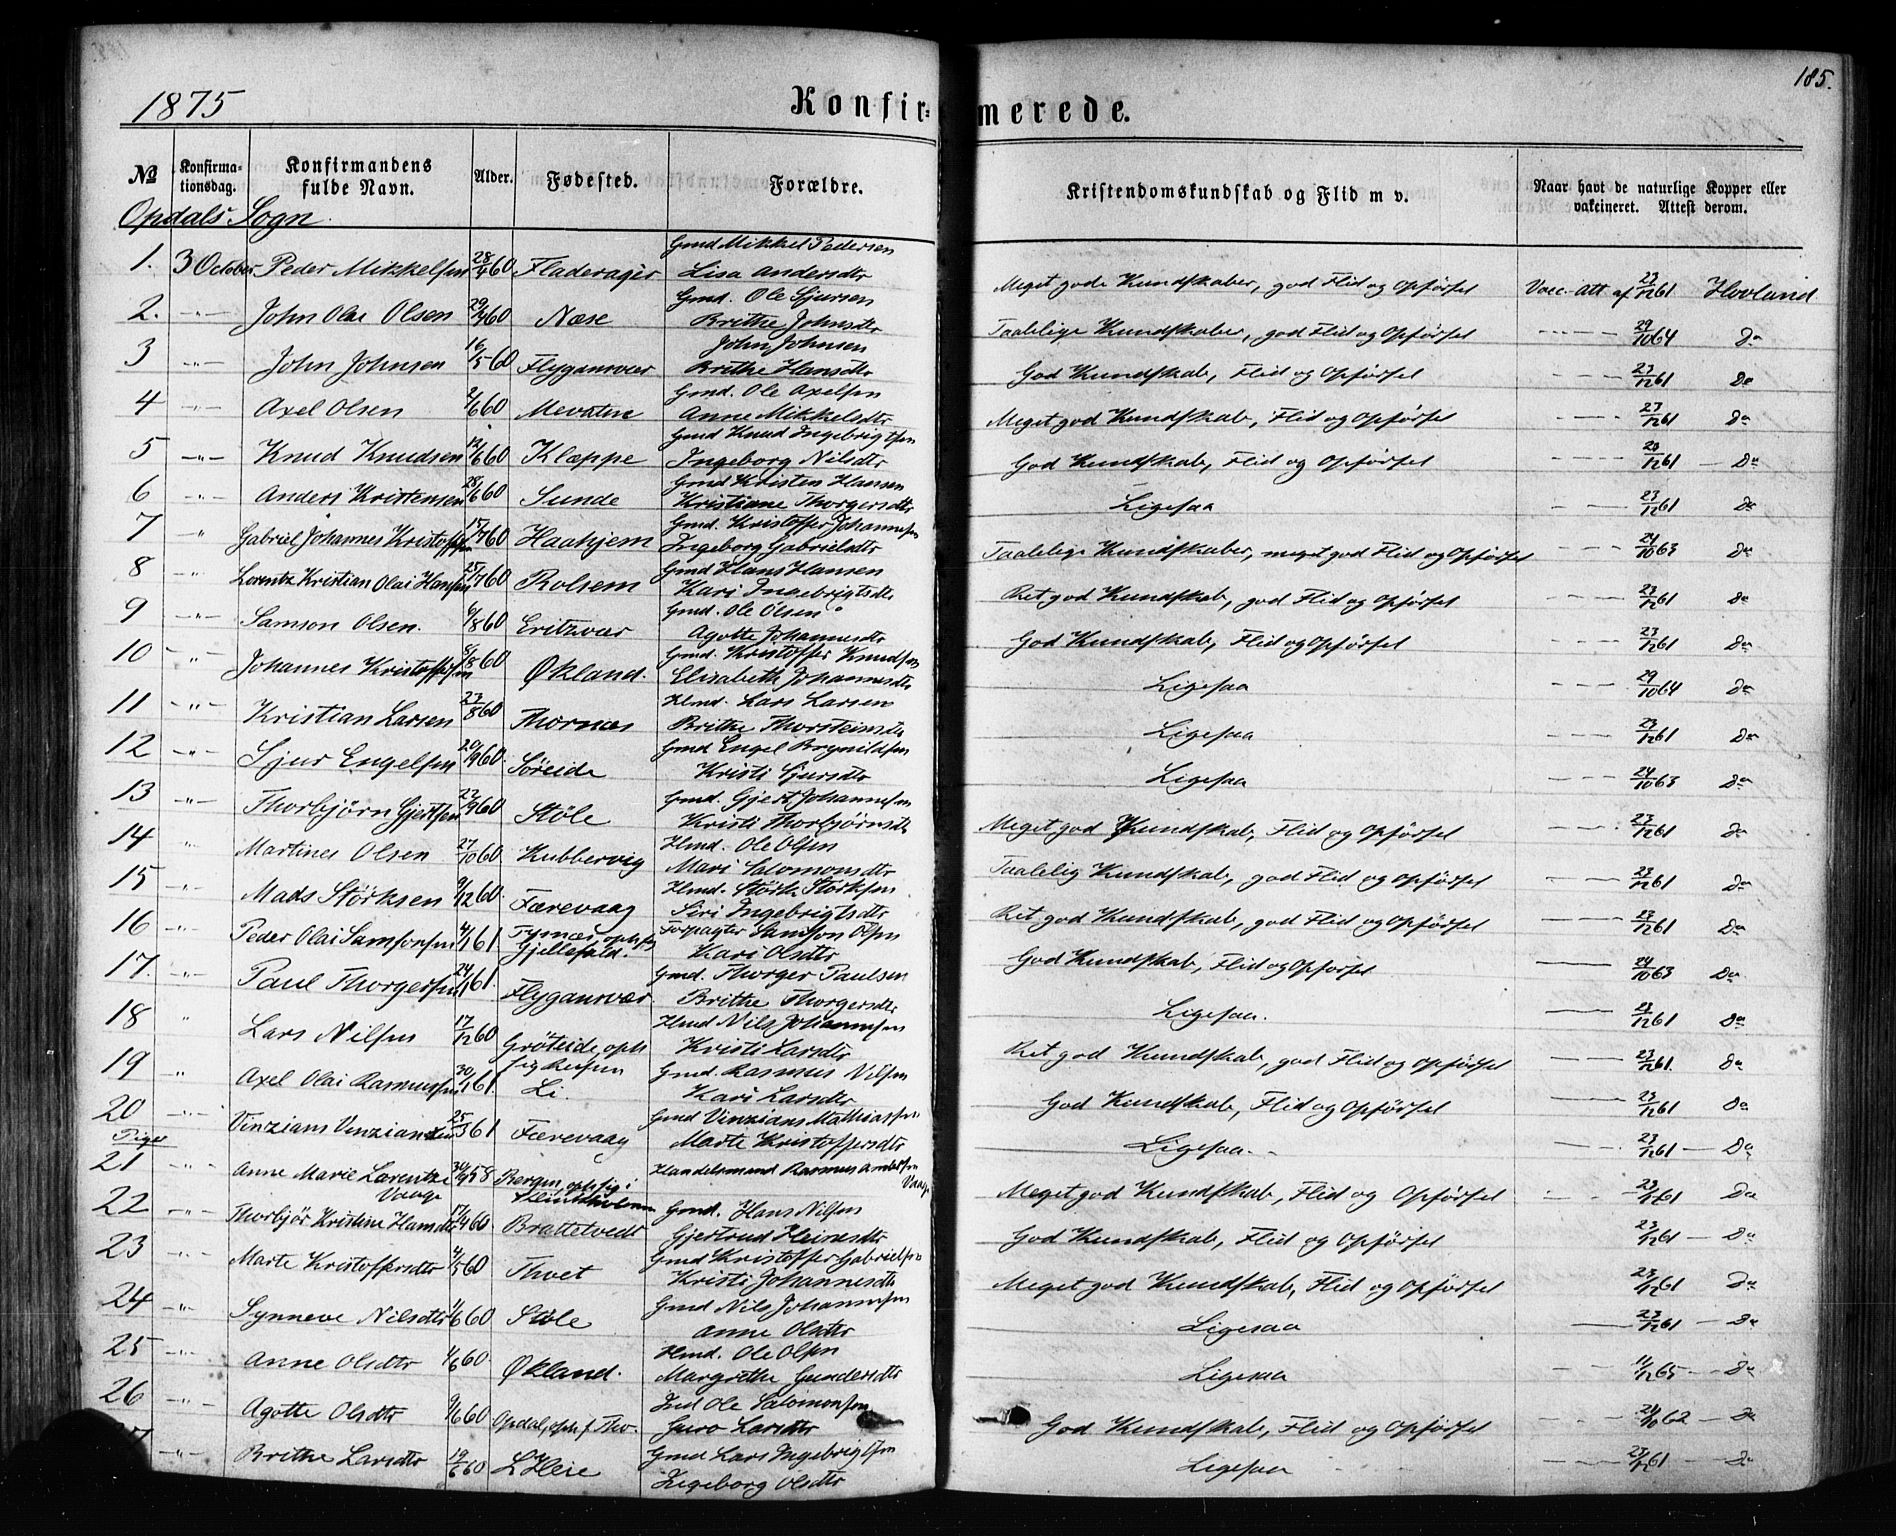 1875 Konfir= merede. 185.
№ Konfirmationsdag. Konfirmandens fulde Navn. Alder. Fødested. Forældre. Kristendomskundskab og Flid m v. Naar havt de naturlige Kopper eller vakcineret. Attest derom.
Opdals Sogn.
1. 3 October Peder Mikkelsen 28/4 60 Fladerager Gmd Mikkel Pedersen Lisa Andersdtr Meget gode Kundskaber, god Flid og Opførsel Vacc. Att af 23/12 61 Hovland
2. -"- John Olai Olsen 29/4 60 Næse Gmd. Ole Sjursen Brithe Johnsdtr Taalelige Kundskaber, god Flid og Opførsel 29/10 64 Do
3 -"- John Johnsen 16/5 60 Flygansvær John Johnsen Brithe Hansdtr God Kundskab, Flid og Opførsel 23/12 61 Do
4 -"- Axel Olsen 2/6 60 Mevatne Gmd. Ole Axelsen Anne Mikkelsdtr Meget god Kundskab, Flid og Opførsel 23/12 61 Do
5 -"- Knud Knudsen 12/6 60 Klæppe Gmd Knud Ingebrigtsen Ingeborg Nilsdtr God Kundskab, Flid og Opførsel 20/12 61 Do
6 -"- Anders Kristensen 28/6 60 Sunde Gmd Kristen Hansen Kristiane Thorgersdtr Ligesaa 23/12 61 Do
7 " Gabriel Johannes Kristoffsen 17/7 60 Haahjem Gmd. Kristoffer Johannesen Ingeborg Gabrielsdtr Taalelige Kundskaber, meget god Flid og Opførsel 24/10 63 Do
8 -"- Lorentz Kristian Olai Hansen 25/7 60 Rolsem Gmd Hans Hansen Kari Ingebrigtsdtr Ret god Kundskab, god Flid og Opførsel 23/12 61 Do
9 -"- Samson Olsen. 6/8 60 Eritzvær Gmd. Ole Olsen Agotte Johannesdtr God Kundskab, Flid og Opførsel 23/12 61 Do
10 -"- Johannes Kristoffersen 6/8 60 Økland. Gmd. Kristoffer Knudsen Elisabeth Johannesdtr Ligesaa 29/10 64 Do
11 -"- Kristian Larsen 27/8 60 Thornæs Hmd. Lars Larsen Brithe Thorsteinsdtr Ligesaa 23/12 61 Do
12 -"- Sjur Engelsen 20/9 60. Søreide Gmd Engel Brynildsen Kristi Sjursdtr Ligesaa 24/10 63 Do
13 -"- Thorbjørn Gjertsen 22/9 60 Støle Gmd. Gjert Johannesen Kristi Thorbjørnsdtr Meget god Kundskab, Flid og Opførsel 23/12 61 Do
14 " Martines Olsen 27/10 60 Kubbervig Hmd. Ole Olsen Mari Salomonsdtr Taalelig Kundskab, god Flid og Opførsel 23/12 61 Do
15 -"- Mads Størksen 9/12 60. Færevaag Hmd. Størk Størksen Siri Ingebrigtsdtr Ret god Kundskab, god Flid og Opførsel 23/12 61 Do
16 -"- Peder Olai Samsonsen 4/1 61 Tysnæs, oph. Gjellefald. Forpagter Samson Olsen Kari Olsdtr God Kundskab, Flid og Opførsel 24/10 63 Do
17. -"- Paul Thorgersen 24/1 61. Flygansvær Gmd. Thorger Paulsen Brithe Thorgersdtr Ligesaa. 23/12 61 Do
18 " Lars Nilsen 17/12 60 Grøteide, oph Hmd Nils Johannesen Kristi Larsdtr Ret god Kundskab, god Flid og Opførsel 23/12 61. Do
19 " Axel Olai Rasmussen 30/1 61. Li. Gmd. Rasmus Nilsen Kari Larsdtr God Kundskab, Flid og Opførsel 23/12 61 Do
20 -"- Vinzians Vinziansen 25/3 61 Færevaag Gmd Vinzians Mathiassen Marte Kristoffersdtr Ligesaa. 23/12 61 Do
Piger
21 -"- Anne Marie Lorentze Vaage 58 Bergen, oph sig i Handelsmand Rasmus Andersen Vaage Meget god Kundskab, Flid og Opførsel 23/12 61 Do
22 -"- Thorbjør Kristine Hansdtr 17/4 60 Brattetvedt Gmd. Hans Nilsen Gjertrud Heinesdtr God Kundskab, Flid og Opførsel 23/12 61 Do
23 -"- Marte Kristoffersdtr 4/5 60 Thvet Gmd Kristoffer Gabrielsen Kristi Johannesdtr Meget god Kundskab, Flid og Opførsel 23/12 61 Do
24 -"- Synneve Nilsdtr 1/6 60 Støle Gmd Nils Johannesen Anne Olsdtr Ligesaa 23/12 61 Do
25 -"- Anne Olsdtr 4/6 60. Økland. Hmd. Ole Olsen Margrethe Gundersdtr Ligesaa 11/12 65 Do
26 -"- Agotte Olsdtr 9/6 60 Opdal, oph. f Thv. Ind Ole Salomonsen Guro Larsdtr God Kundskab, Flid og Opførsel 24/10 62 Do
7 -"- Brithe Larsdtr 19/6 60 L Heie Gmd Lars Ingebrigtsen Ingeborg Olsdtr Ligesaa 23/12 61 Do